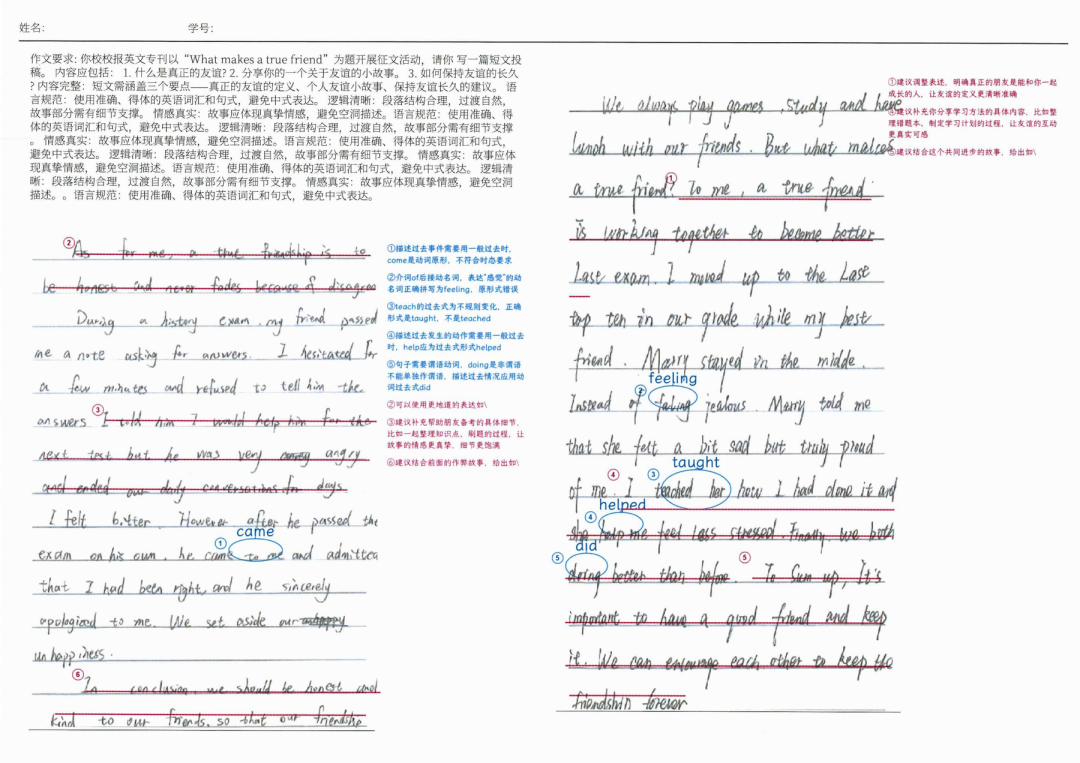 姓名:
学号:
作文要求: 你校校报英文专刊以“What makes a true friend”为题开展征文活动，请你 写一篇短文投
稿。 内容应包括： 1. 什么是真正的友谊? 2. 分享你的一个关于友谊的小故事。 3. 如何保持友谊的长久
? 内容完整：短文需涵盖三个要点——真正的友谊的定义、个人友谊小故事、保持友谊长久的建议。 语
言规范：使用准确、得体的英语词汇和句式，避免中式表达。 逻辑清晰：段落结构合理，过渡自然，
故事部分需有细节支撑。 情感真实：故事应体现真挚情感，避免空洞描述。语言规范：使用准确、得
体的英语词汇和句式，避免中式表达。 逻辑清晰：段落结构合理，过渡自然，故事部分需有细节支撑
。 情感真实：故事应体现真挚情感，避免空洞描述。语言规范：使用准确、得体的英语词汇和句式，
避免中式表达。 逻辑清晰：段落结构合理，过渡自然，故事部分需有细节支撑。 情感真实：故事应体
现真挚情感，避免空洞描述。语言规范：使用准确、得体的英语词汇和句式，避免中式表达。 逻辑清
晰：段落结构合理，过渡自然，故事部分需有细节支撑。 情感真实：故事应体现真挚情感，避免空洞
描述。。语言规范：使用准确、得体的英语词汇和句式，避免中式表达。
②As for me, a true friendship is to
be honest and never fades because of disagree
During a history exam, my friend passed
me a note asking for answers. I hesitated for
a few minutes and refused to tell him the
answers ③ I told him I would help him for the
next test but he was very angry
and ended our daily conversations for days.
I felt bitter. However after he passed the
came
exam on his own, he ① came to me and admitted
that I had been right, and he sincerely
apologized to me. We set aside our
unhappiness.
⑥In conclusion, we should be honest and
kind to our friends, so that our friendship
①描述过去事件需要用一般过去时，
come是动词原形，不符合时态要求
②介词of后接动名词，表达“感觉”的动
名词正确拼写为feeling，原形式错误
③teach的过去式为不规则变化，正确
形式是taught，不是teached
④描述过去发生的动作需要用一般过去
时，help应为过去式形式helped
⑤句子需要谓语动词，doing是非谓语
不能单独作谓语，描述过去情况应用动
词过去式did
②可以使用更地道的表达如\
③建议补充帮助朋友备考的具体细节，
比如一起整理知识点，刷题的过程，让
故事的情感更真挚，细节更饱满
⑥建议结合前面的作弊故事，给出如\
We always play games, study and have
lunch with our friends. But what makes
a true friend? ① To me, a true friend
is working together to become better
Last exam. I moved up to the Last
top ten in our grade while my best
friend. Marry stayed in the midde.
feeling
Instead of ② jealous. Marry told me
that she felt a bit sad but truly proud
taught
of me. ④ I ③ teached her how I had done it and
helped
she ④ help me feel less stressed. Finally, we both
did
⑤ doing better than before. ⑤ To Sum up, It's
important to have a good friend and keep
it. We can encourage each other to keep the
friendship forever
①建议调整表述，明确真正的朋友是能和你一起
成长的人，让友谊的定义更清晰准确
④建议补充你分享学习方法的具体内容，比如整
理错题本、制定学习计划的过程，让友谊的互动
更真实可感
⑤建议结合这个共同进步的故事，给出如\